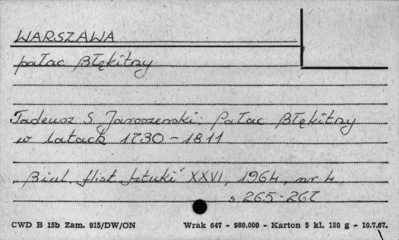 WARSZAWA
pałac Błękitny
Tadeusz S. Jaroszewski: Pałac Błękitny
w latach 1730-1811
"Biul. Hist. Sztuki" XXVI, 1964, nr 4,
s 265-267
CWD B 15b Zam. 915/DW/ON Wrak 647 - 980.000 - Karton 5 kl. 180 g - 10.7.67.